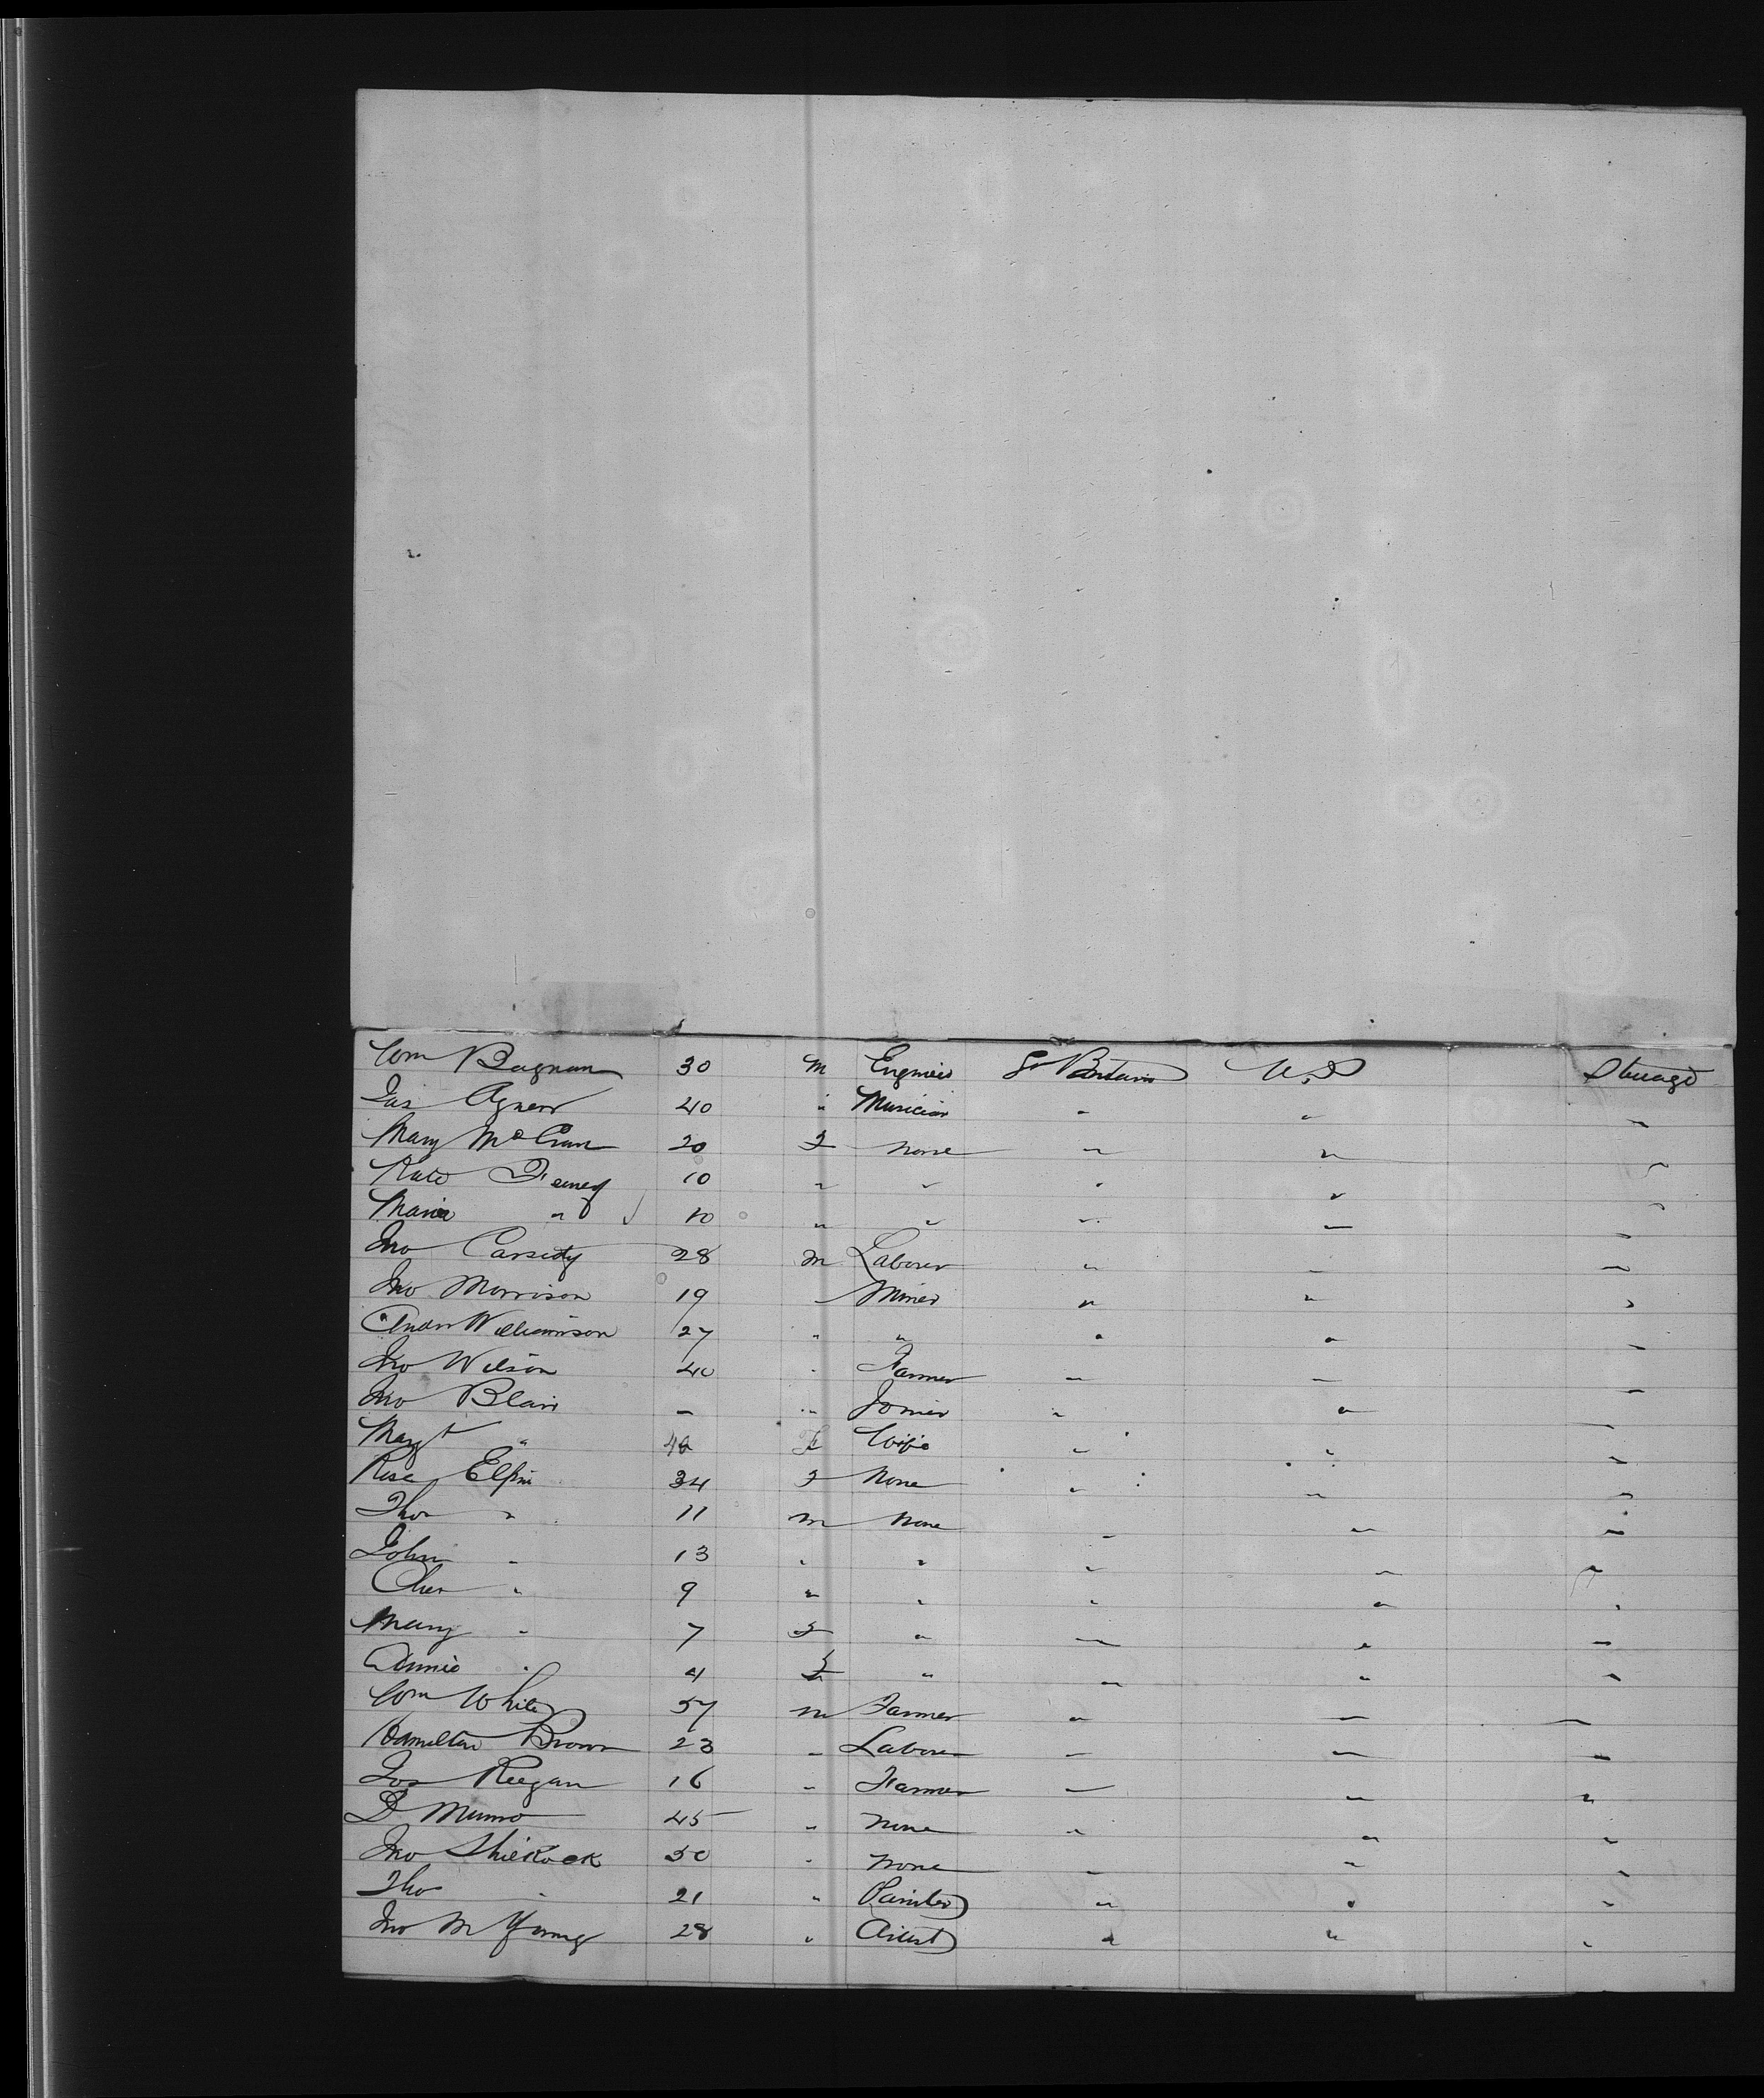 Wm Bagnan 30 M Engineer Gr Britain U.S Steerage
Jas Agnew 40 " Musician " " "
Mary McCran 20 F None " " "
Kate Feeney 10 " " " " "
Maria " 10 " " " " "
Jno Cassidy 28 M Laborer " " "
Jno Morrison 19 Miner " " "
Andw Williamson 27 " " " " "
Jno Wilson 40 " Farmer " " "
Jno Blair " " Joiner " " "
Margt " 40 F Wife " " "
Rose Elpin 34 F None " " "
Thos " 11 M None " " "
John " 13 " " " " "
Chas " 9 " " " " "
Mary " 7 F " " " "
Annie " 4 F " " " "
Wm White 57 M Farmer " " "
Hamilton Brown 23 " Laborer " " "
Jos Reegan 16 " Farmer " " "
D Munro 45 " None " " "
Jno 50 " None " " "
Tho " 21 " Painter " " "
Jno M Young 28 " Artist " " "